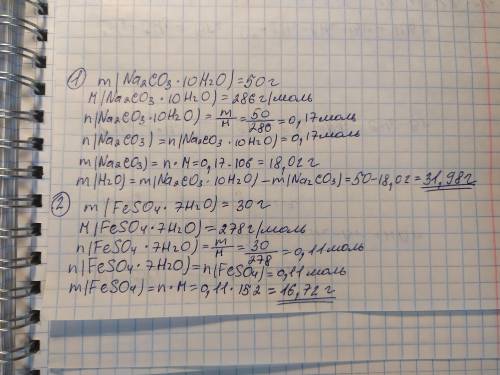 ① m(Na₂CO₃·10H₂O)=50г
M(Na₂CO₃·10H₂O)=286г/моль
n(Na₂CO₃·10H₂O)=m/M=50/286=0,17моль
n(Na₂CO₃)=n(Na₂CO₃·10H₂O)=0,17моль
m(Na₂CO₃)=n·M=0,17·106=18,02г
m(H₂O)=m(Na₂CO₃·10H₂O)-m(Na₂CO₃)=50-18,02=31,98г
② m(FeSO₄·7H₂O)=30г
M(FeSO₄·7H₂O)=278г/моль
n(FeSO₄·7H₂O)=m/M=30/278=0,11моль
n(FeSO₄·7H₂O)=n(FeSO₄)=0,11моль
m(FeSO₄)=n·M=0,11·152=16,72г